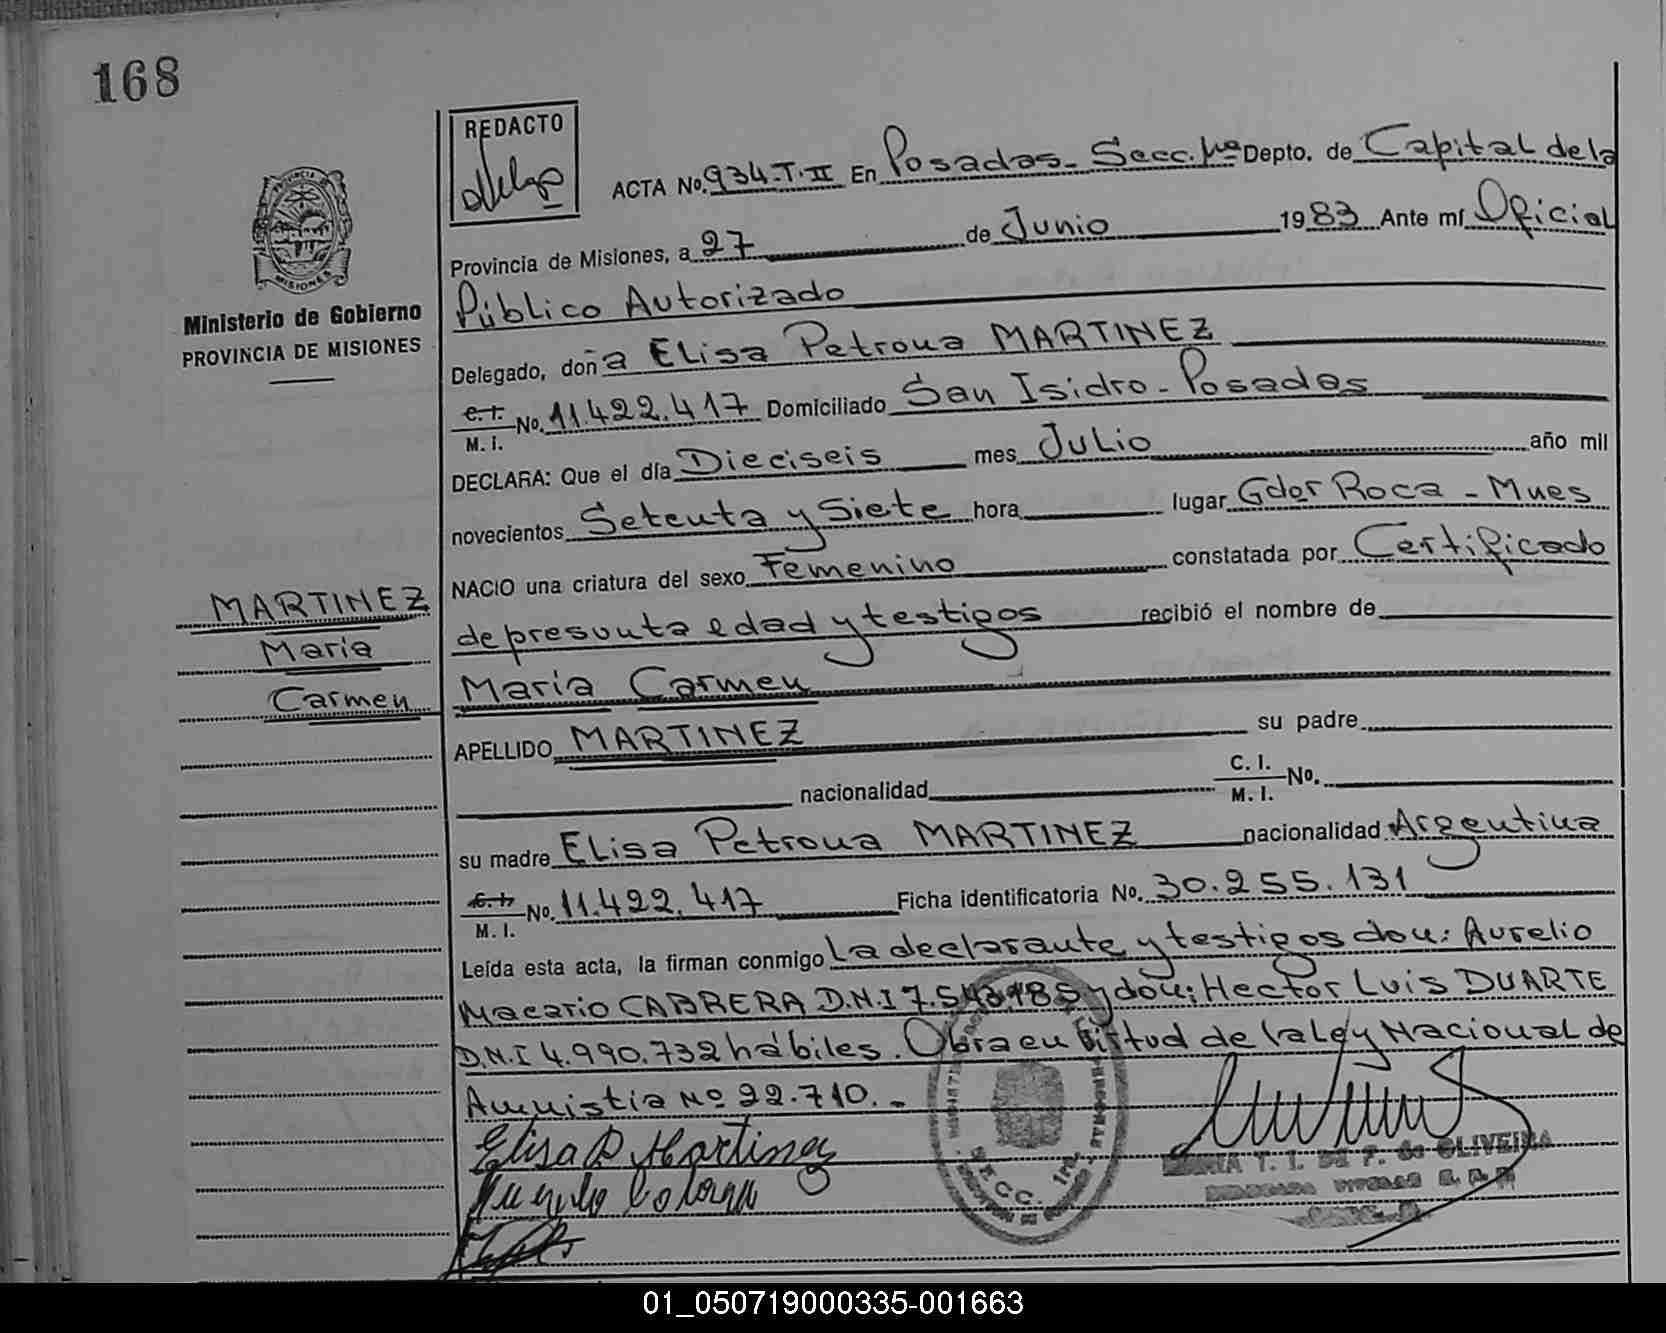 168
REDACTO
ACTA No. 934-T.II En Posadas- Secc. 1ra Depto. de Capital de la
Provincia de Misiones, a 27 de Junio 1983 Ante mí Oficial
Público Autorizado
MISIONES
Ministerio de Gobierno
PROVINCIA DE MISIONES
Delegado, doña Elisa Petrona MARTINEZ
C.I.
M. I. No. 11.422.417 Domiciliado San Isidro - Posadas
DECLARA: Que el día Dieciseis mes Julio año mil
novecientos Setenta y Siete hora lugar Gdor Roca - Mnes
NACIO una criatura del sexo Femenino constatada por Certificado
de presunta edad y testigos recibió el nombre de
María Carmen
MARTINEZ
María
Carmen
APELLIDO MARTINEZ su padre
nacionalidad C. I.
M. I. No.
su madre Elisa Petrona MARTINEZ nacionalidad Argentina
C.I.
M. I. No. 11.422.417 Ficha identificatoria No. 30.255.131
Leída esta acta, la firman conmigo La declarante y testigos don: Aurelio
Macario CABRERA D.N.I 7.543.185 y don: Hector Luis DUARTE
D.N.I 4.990.732 hábiles. Obra en virtud de la ley Nacional de
Amnistia Nº 22.710.-
Elisa P Martinez
MARIA T. I. DE F. de OLIVEIRA
01_050719000335-001663